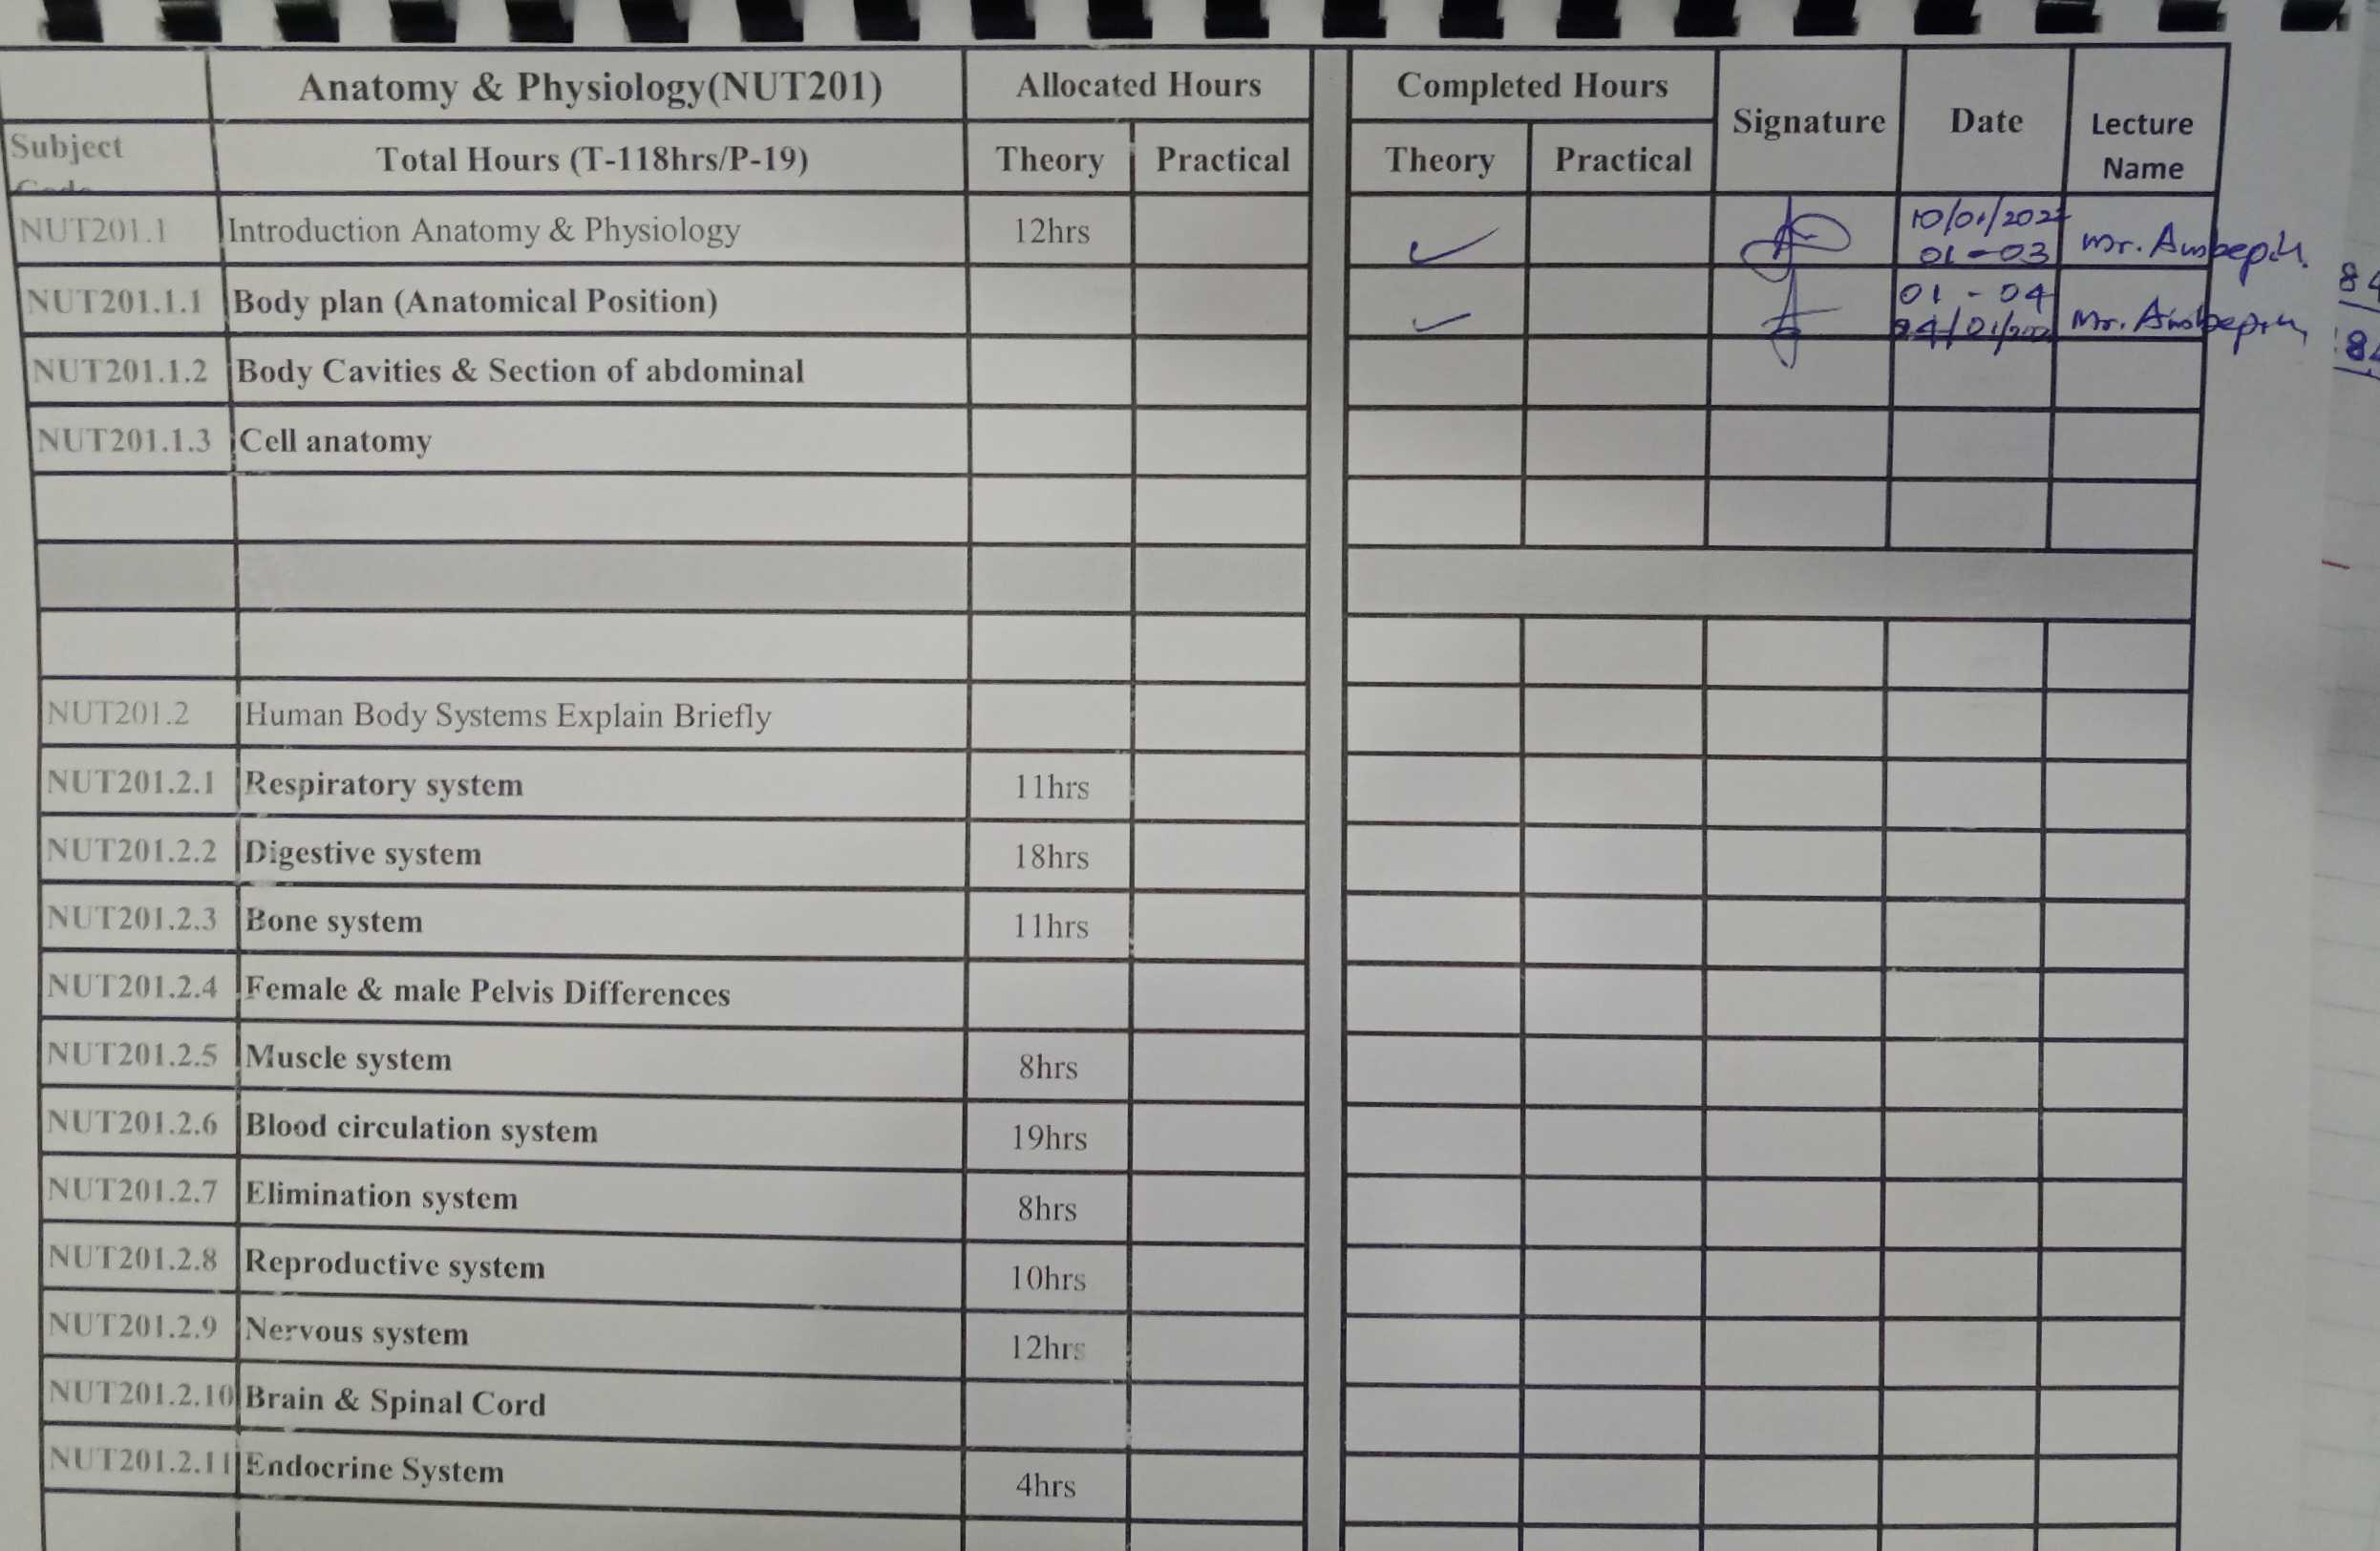 Anatomy & Physiology(NUT201) Allocated Hours Completed Hours Signature Date Lecture Name
Subject Total Hours (T-118hrs/P-19) Theory Practical Theory Practical
NUT201.1 Introduction Anatomy & Physiology 12hrs 10/01/202
01-03 Mr.
NUT201.1.1 Body plan (Anatomical Position) 01 - 04
Mr.
NUT201.1.2 Body Cavities & Section of abdominal
NUT201.1.3 Cell anatomy
NUT201.2 Human Body Systems Explain Briefly
NUT201.2.1 Respiratory system 11hrs
NUT201.2.2 Digestive system 18hrs
NUT201.2.3 Bone system 11hrs
NUT201.2.4 Female & male Pelvis Differences
NUT201.2.5 Muscle system 8hrs
NUT201.2.6 Blood circulation system 19hrs
NUT201.2.7 Elimination system 8hrs
NUT201.2.8 Reproductive system 10hrs
NUT201.2.9 Nervous system 12hrs
NUT201.2.10 Brain & Spinal Cord
NUT201.2.11 Endocrine System 4hrs